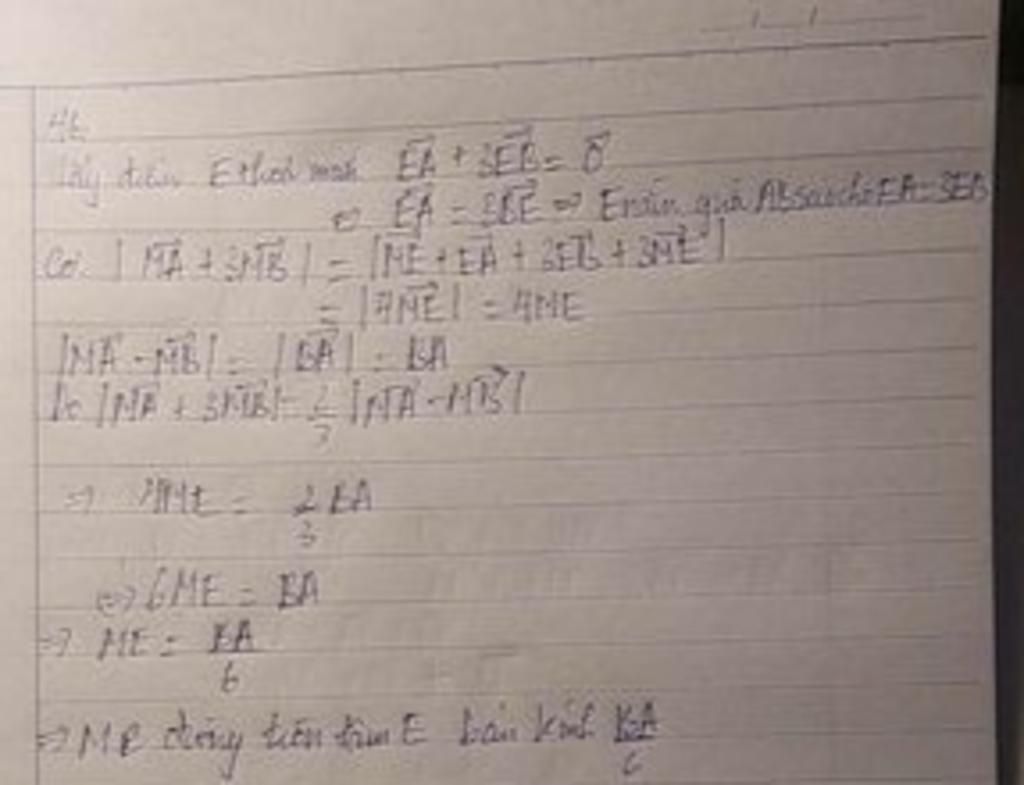 Lấy điểm E thoả mãn EA + 3EB = 0
⇔ EA = 3BE ⇔ E nằm giữa AB sao cho EA = 3EB
Có: |MA + 3MB| = |ME + EA + 3EB + 3ME|
= |4ME| = 4ME
|MA - MB| = |BA| = BA
|MA + 3MB| = 2/3 |MA - MB|
⇒ 4ME = 2/3 BA
⇔ 6ME = BA
⇒ ME = BA/6
⇒ M E đường tròn tâm E bán kính BA/6